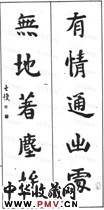 有情通幽
無地著塵埃
中华收藏网
www.PMV.CN